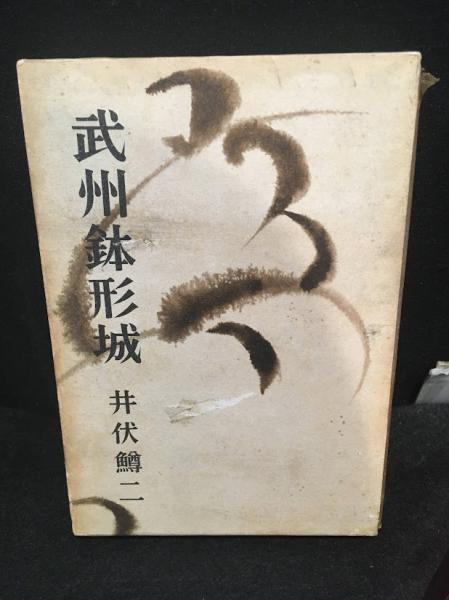 武州鉢形城
井伏鱒二